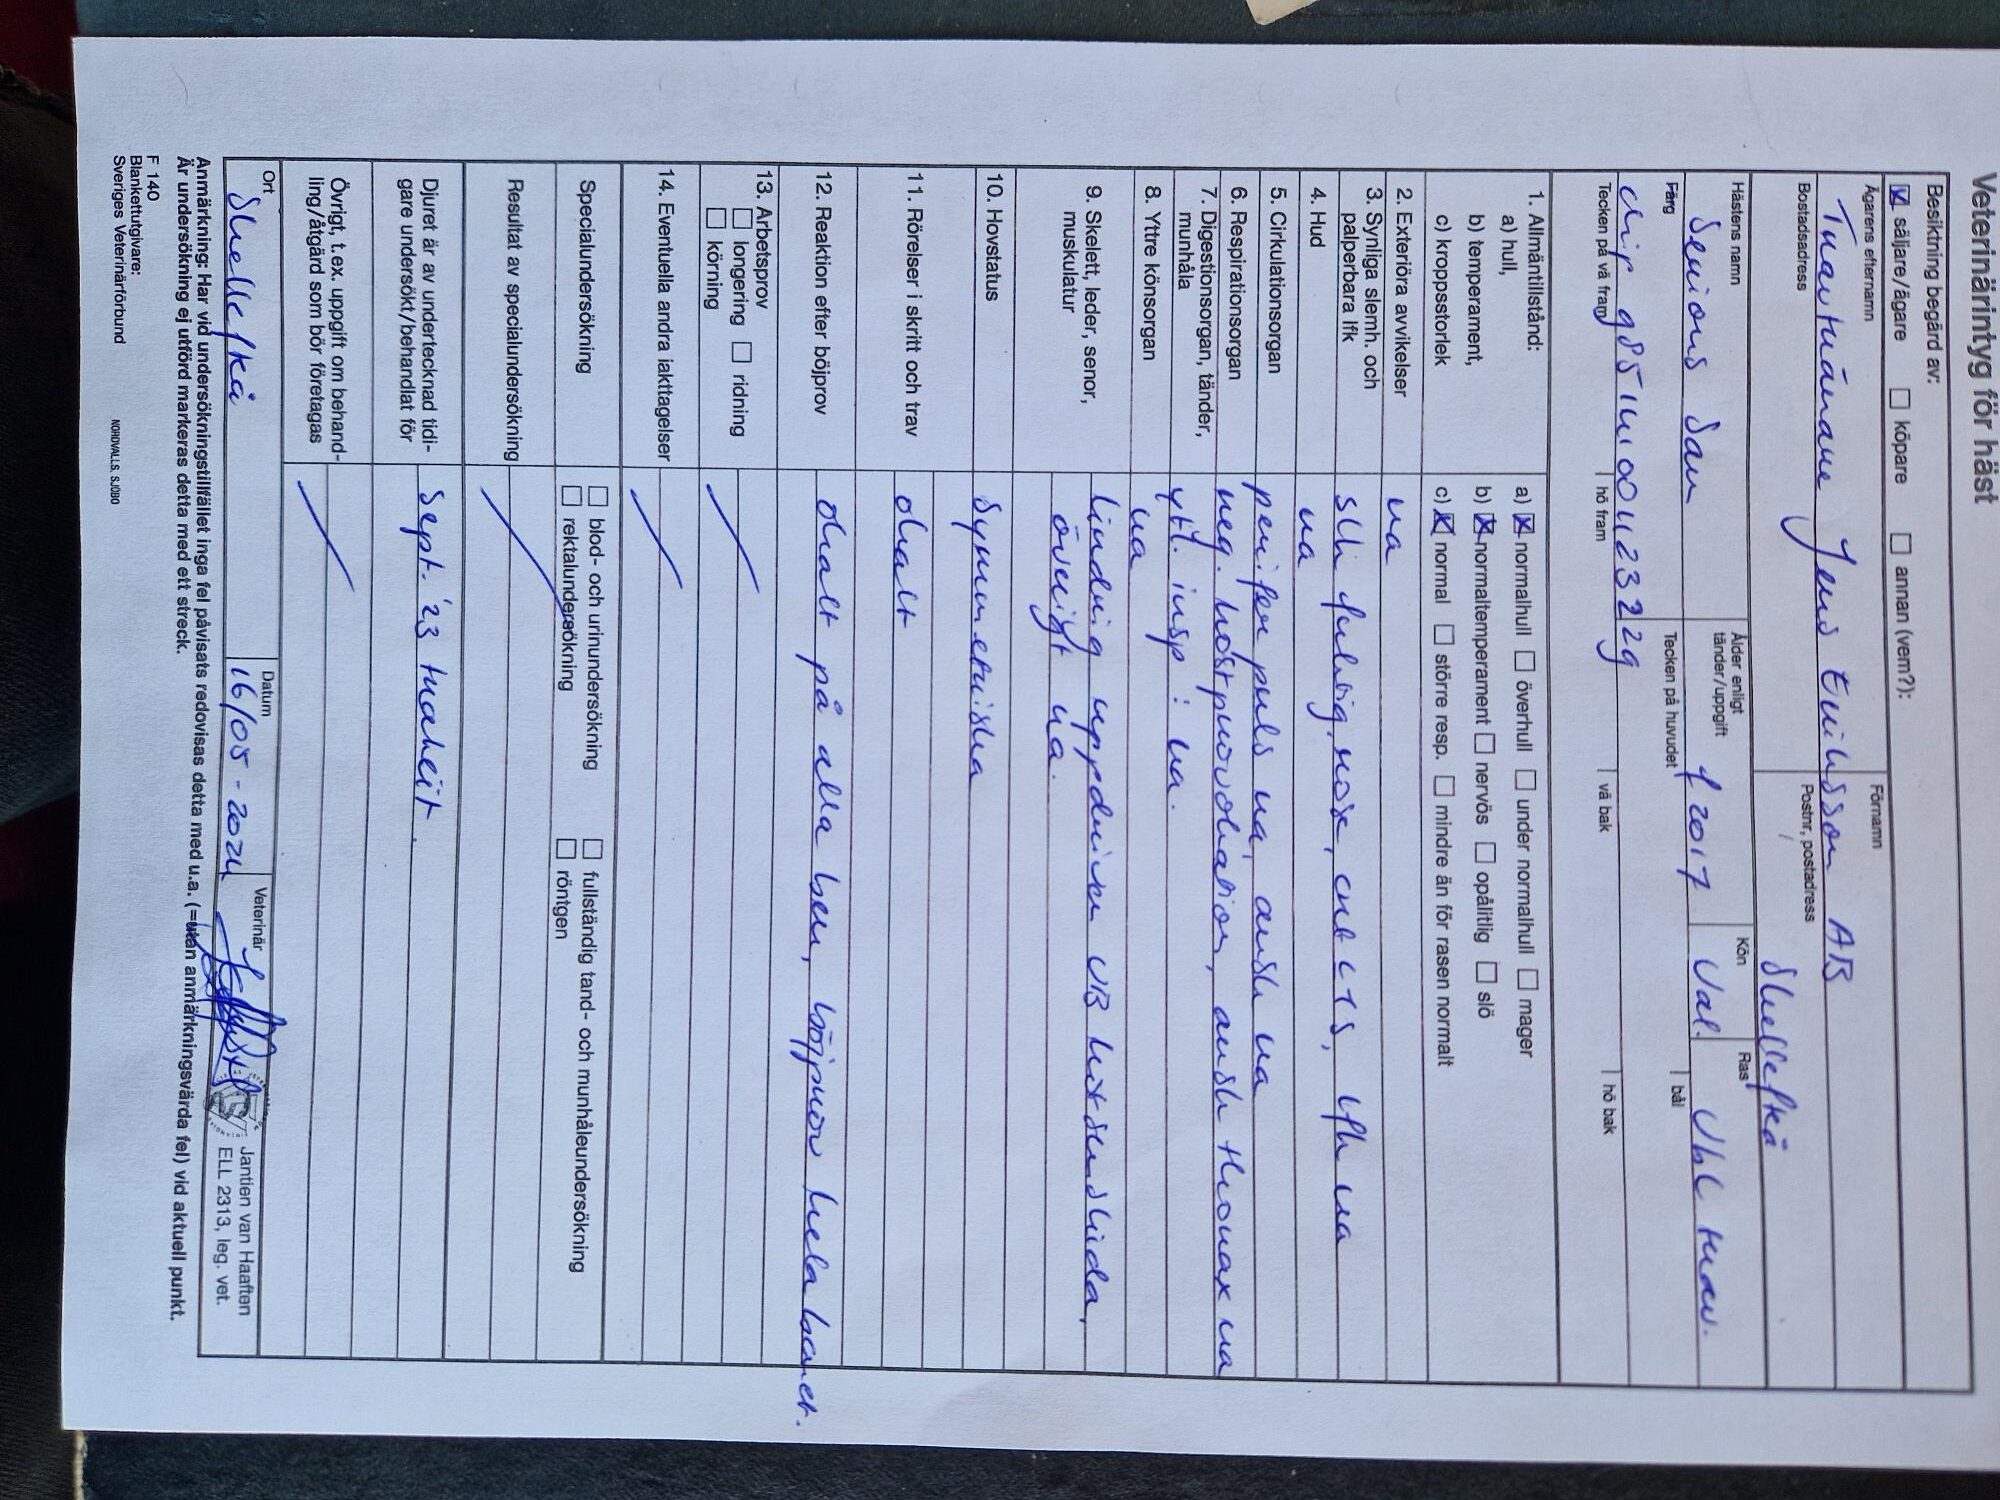 Veterinärintyg för häst
Besiktning begärd av:
säljare/ägare köpare annan (vem?):
Ägarens efternamn Förnamn
Travtränare Jens Eriksson AB
Bostadsadress Postnr, postadress
Skellefteå
Hästens namn Ålder enligt tänder/uppgift Kön Ras
Seniors Sam f 2017 Val. Vbl trav.
Färg Tecken på huvudet bål
chip
Tecken på vä fram hö fram vä bak hö bak
1. Allmäntillstånd:
a) hull, a) normalhull överhull under normalhull mager
b) temperament, b) normaltemperament nervös opålitlig slö
c) kroppsstorlek c) normal större resp. mindre än för rasen normalt
2. Exteriöra avvikelser ua
3. Synliga slemh. och palperbara lfk slh fuktig, rosa, CRT < 1 s, lfk ua
4. Hud ua
5. Cirkulationsorgan perifer puls ua, ausk ua
6. Respirationsorgan neg. hostprovokation, ausk thorax ua
7. Digestionsorgan, tänder, munhåla ytl. insp: ua.
8. Yttre könsorgan ua
9. Skelett, leder, senor, muskulatur lindrig uppdriven VB kotsenskida,
övrigt ua.
10. Hovstatus symmetriska
11. Rörelser i skritt och trav ohalt
12. Reaktion efter böjprov ohalt på alla ben, böjprov hela benet.
13. Arbetsprov
longering ridning
körning
14. Eventuella andra iakttagelser
Specialundersökning blod- och urinundersökning fullständig tand- och munhåleundersökning
rektalundersökning röntgen
Resultat av specialundersökning
Djuret är av undertecknad tidi-
gare undersökt/behandlat för sept. '23
Övrigt, t.ex. uppgift om behand-
ling/åtgärd som bör företagas
Ort Datum Veterinär
Skellefteå 16/05 - 2024
Jantien van Haaften
ELL 2313, leg. vet.
Anmärkning: Har vid undersökningstillfället inga fel påvisats redovisas detta med u.a. (=utan anmärkningsvärda fel) vid aktuell punkt.
Är undersökning ej utförd markeras detta med ett streck.
F 140
Blankettutgivare:
Sveriges Veterinärförbund NORDVALLS, SJÖBO